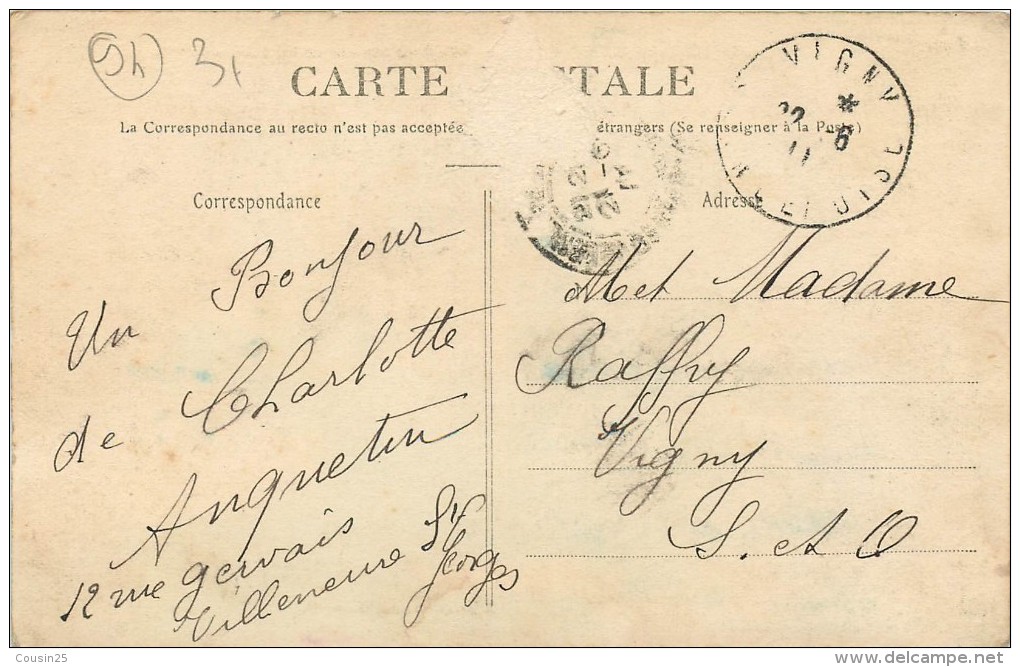 94 31
CARTE POSTALE
La Correspondance au recto n'est pas acceptée étrangers (Se renseigner à la Poste)
VIGNY
22 * 6
11
SEINE ET OISE
Correspondance
Adresse
Un Bonjour
de Charlotte
Anquetin
12 rue gervais
Villeneuve St
Georges
M et Madame
Raffry
Vigny
S. et O
Cousin25
www.delcampe.net